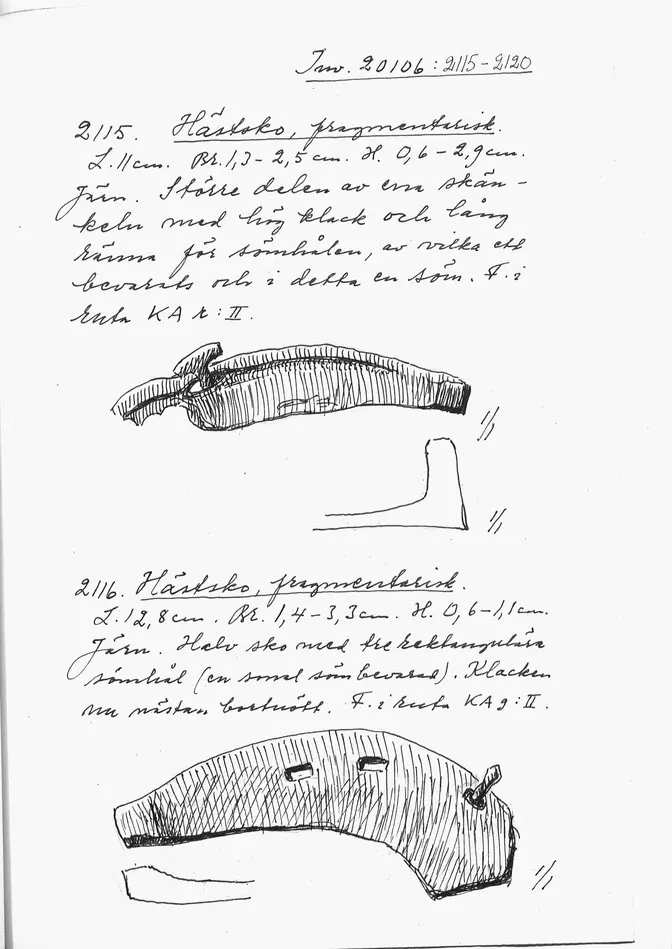 Inv. 20106 : 2115-2120
2115. Hästsko, fragmentarisk.
L. 11 cm. Br. 1,3 - 2,5 cm. H. 0,6 - 2,9 cm.
Järn. Större delen av ena skän-
keln med hög klack och lång
ränna för sömhålen, av vilka ett
bevarats och i detta en söm. F. i
ruta KA r : II.
1/1
1/1
2116. Hästsko, fragmentarisk.
L. 12,8 cm. Br. 1,4 - 3,3 cm. H. 0,6 - 1,1 cm.
Järn. Halv sko med tre rektangulära
sömhål (en smal söm bevarad). Klacken
nu nästan bortnött. F. i ruta KA g : II.
1/1